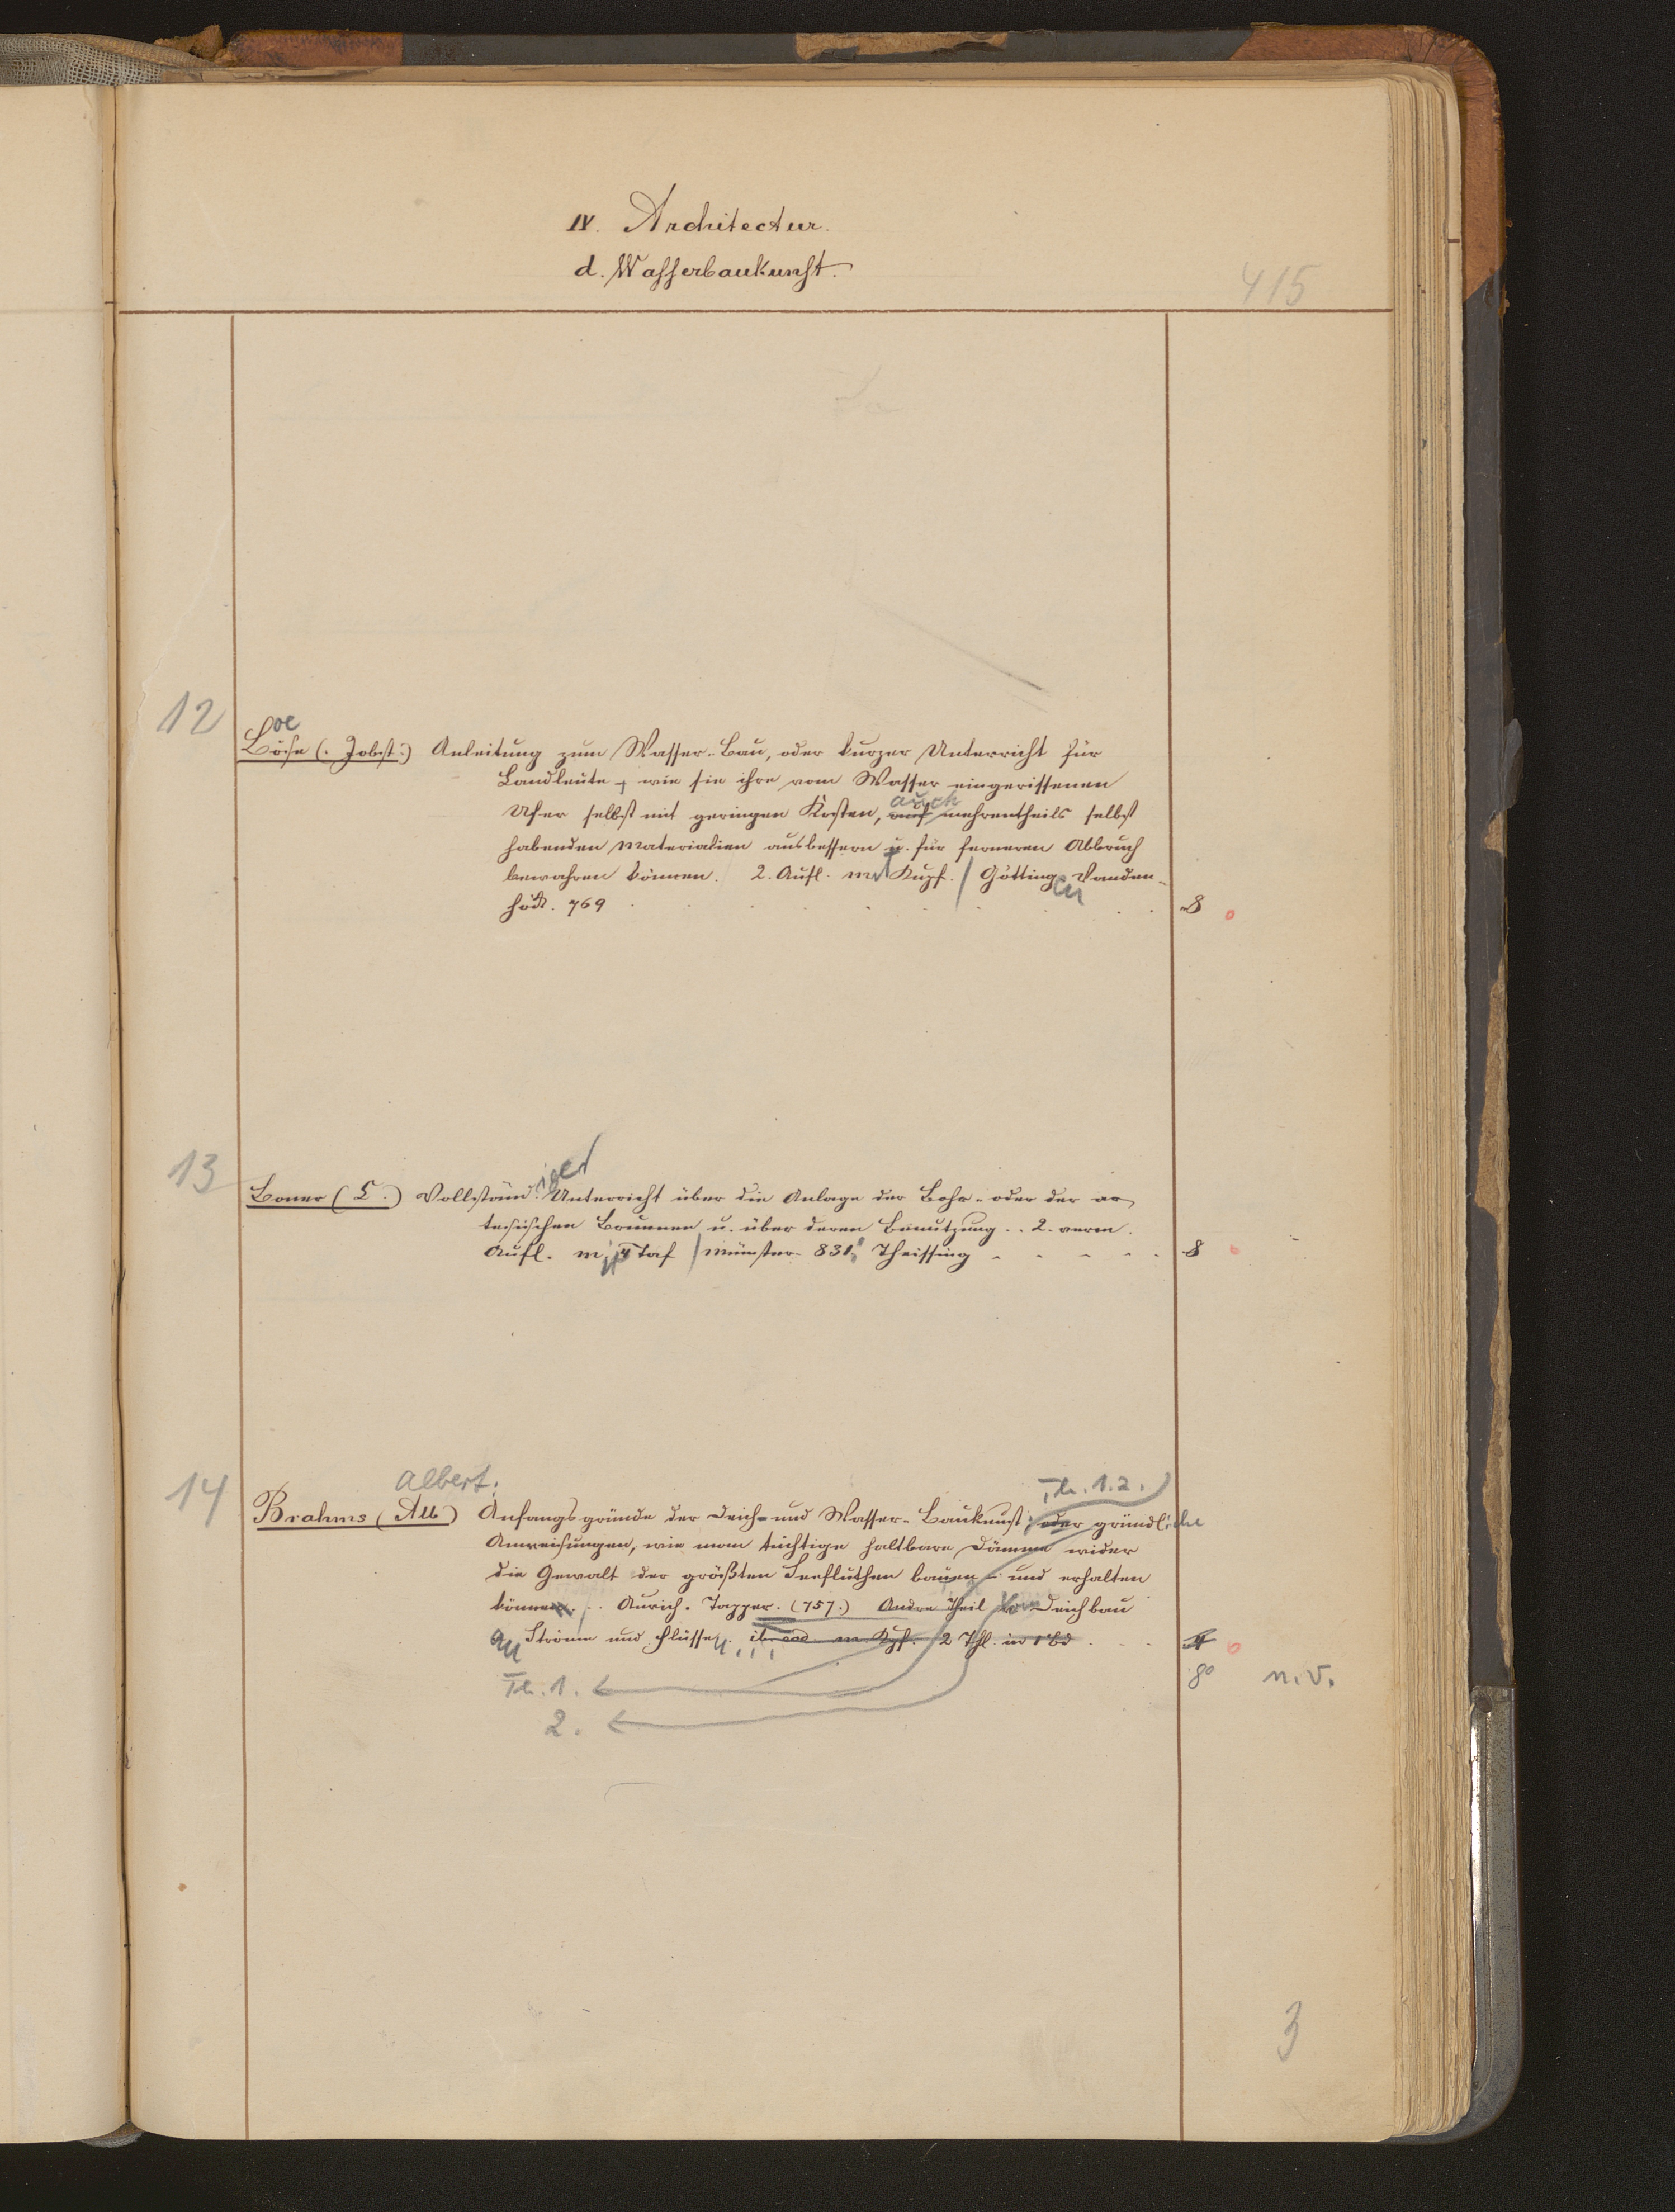 IV. Architectur.
d. Wasserbaukunst.
415
12
oe
Böse (: Jobst :) Anleitung zum Wasser-Bau, oder kurzer Unterricht für
Landleute, wie sie ihre vom Wasser eingerissenen
auch
Ufer selbst mit geringen Kosten, auf mehrentheils selbst
habenden Materialien ausbessern u. für ferneren Abbruch
bewahren können. 2. Aufl. m. Kupf. / Götting. Vanden-
en
höck. 769 8
13
iger
Boner (L.) Vollständ. Unterricht über die Anlage der Bohr- oder der ar
tesischen Brunnen u. über deren Benutzung .. 2. verm.
Aufl. m. 4 Taf / Münster. 831. Theissing 8
14
Albert.
Th. 1.2.
Brahms (Alb) Anfangsgründe der Deich- und Wasser-Baukunst; oder gründliche
Anweisungen, wie man tüchtige haltbare Dämme wider
die Gewalt der größten Seefluthen bauen und erhalten
können. .. Aurich. Tapper. (757.) Andre Theil vom Deichbau
an Ströme und Flüssen. ib. eod. m. Kpf. 2 Thl. in 1 Bd 4
8° n.v.
Th. 1.
2.
3